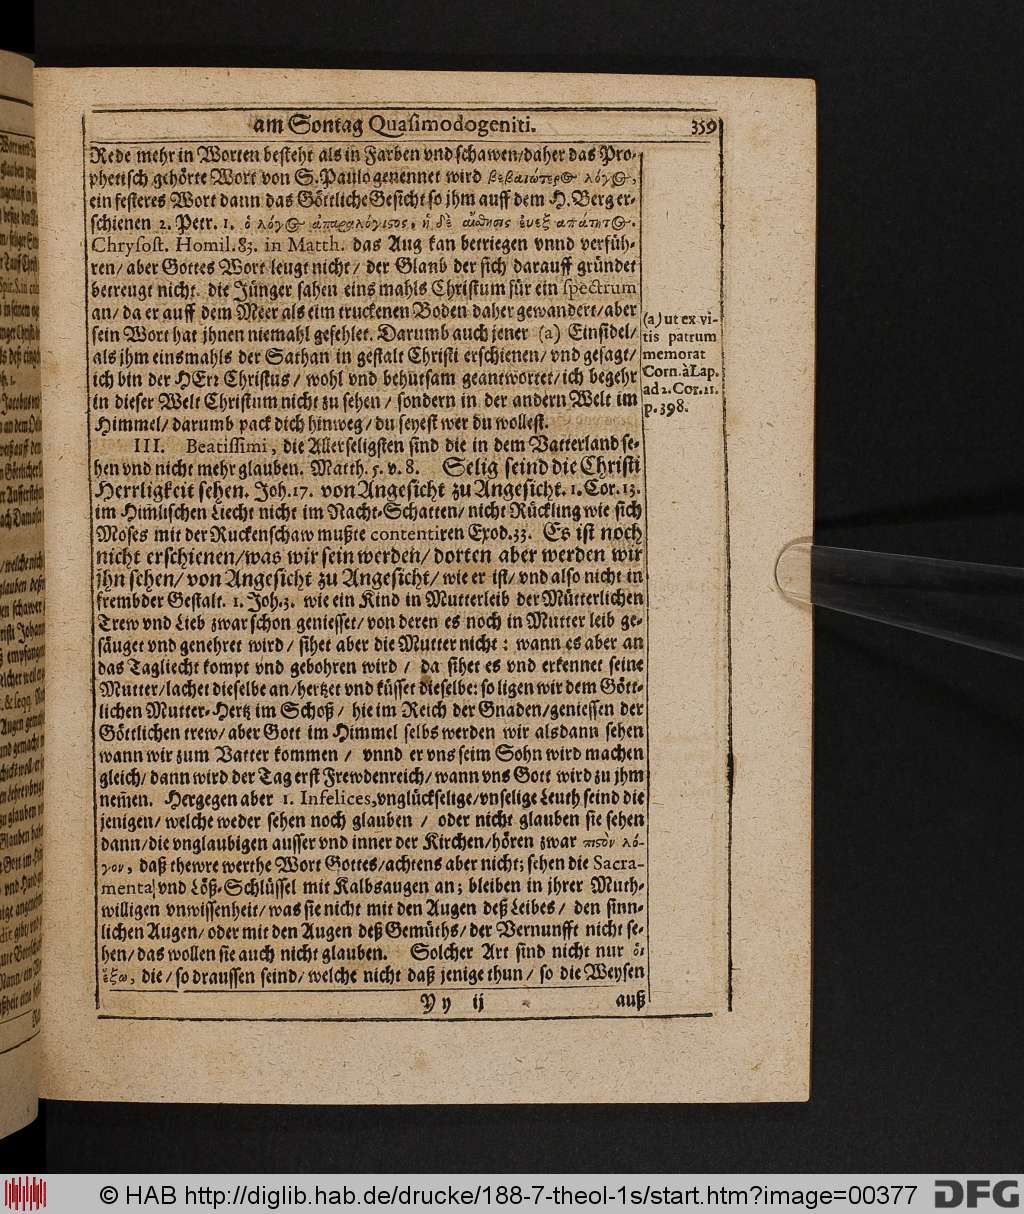 am Sontag Quasimodogeniti. 359
Rede mehr in Worten besteht als in Farben vnd schawen/daher das Pro-
phetisch gehörte Wort von S. Paulo genennet wird βεβαιώτερος λόγος,
ein festeres Wort dann das Göttliche Gesicht so jhm auff dem H. Berg er-
schienen 2. Petr. 1. ὁ λόγος ἀπαραλόγιστος, ἡ δὲ
Chrysost. Homil. 83. in Matth. das Aug kan betriegen vnnd verfüh-
ren/ aber Gottes Wort leugt nicht/ der Glaub der sich darauff gründet
betreugt nicht. die Jünger sahen eins mahls Christum für ein spectrum
an/ da er auff dem Meer als eim truckenen Boden daher gewandert/aber
sein Wort hat jhnen niemahl gefehlet. Darumb auch jener (a) Einsidel/
als jhm einsmahls der Sathan in gestalt Christi erschienen/ vnd gesagt/
ich bin der HErr Christus/ wohl vnd behutsam geantwortet/ich begehr
in dieser Welt Christum nicht zu sehen/ sondern in der andern Welt im
Himmel/ darumb pack dich hinweg/ du seyest wer du wollest.
(a) ut ex vi-
tis patrum
memorat
Corn. à Lap.
ad 2. Cor. 11.
p. 398.
III. Beatissimi, die Allerseligsten sind die in dem Vatterland se-
hen vnd nicht mehr glauben. Matth. 5. v. 8. Selig seind die Christi
Herrligkeit sehen. Joh. 17. von Angesicht zu Angesicht. 1. Cor. 13.
im Him̃lischen Liecht nicht im Nacht-Schatten/ nicht Rückling wie sich
Moses mit der Ruckenschaw mußte contentiren Exod. 33. Es ist noch
nicht erschienen/was wir sein werden/ dorten aber werden wir
jhn sehen/ von Angesicht zu Angesicht/ wie er ist/ vnd also nicht in
frembder Gestalt. 1. Joh. 3. wie ein Kind in Mutterleib der Mütterlichen
Trew vnd Lieb zwar schon geniesset/ von deren es noch in Mutter leib ge-
säuget vnd genehret wird/ sihet aber die Mutter nicht: wann es aber an
das Tagliecht kompt vnd gebohren wird/ da sihet es vnd erkennet seine
Mutter/ lachet dieselbe an/ hertzet vnd küsset dieselbe: so ligen wir dem Gött-
lichen Mutter-Hertz im Schoß/ hie im Reich der Gnaden/geniessen der
Göttlichen trew/ aber Gott im Himmel selbs werden wir alsdann sehen
wann wir zum Vatter kommen/ vnnd er vns seim Sohn wird machen
gleich/ dann wird der Tag erst Frewdenreich/ wann vns Gott wird zu jhm
nem̃en. Hergegen aber 1. Infelices, vnglückselige/vnselige Leuth seind die
jenigen/ welche weder sehen noch glauben/ oder nicht glauben sie sehen
dann/ die vnglaubigen ausser vnd inner der Kirchen/hören zwar πιστὸν λό-
γον, daß thewre werthe Wort Gottes/achtens aber nicht; sehen die Sacra-
menta vnd Löß-Schlüssel mit Kalbsaugen an; bleiben in jhrer Muth-
willigen vnwissenheit/ was sie nicht mit den Augen deß Leibes/ den sinn-
lichen Augen/ oder mit den Augen deß Gemüths/ der Vernunfft nicht se-
hen/ das wollen sie auch nicht glauben. Solcher Art sind nicht nur οἱ
ἔξω, die/ so draussen seind/ welche nicht daß jenige thun/ so die Weysen
Yy ij auß
© HAB http://diglib.hab.de/drucke/188-7-theol-1s/start.htm?image=00377
DFG